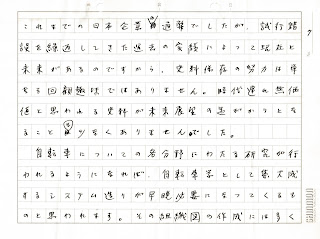 7
これまでの日本企業の通弊でしたが、試行錯
誤を繰返してきた過去の実績によって現在と
未来があるのですから、史料保存の努力は単
なる回顧趣味ではありません。時代遅れ無価
値と思われる史料が未来展望の基がかりとな
ることも少なくありませんでした。
自転車についての各分野にわたる研究が行
われるようになれば、自転車学として集大成
するシステム造りが早晩必要になってくるも
のと思われます。その組織図の作成には多く